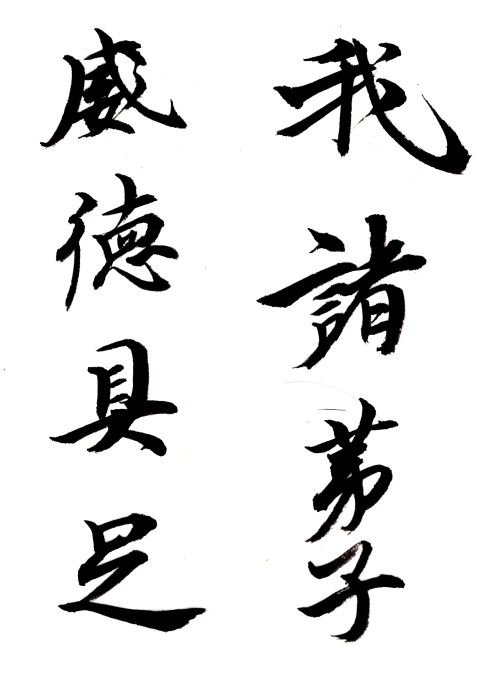 我諸弟子
威徳具足